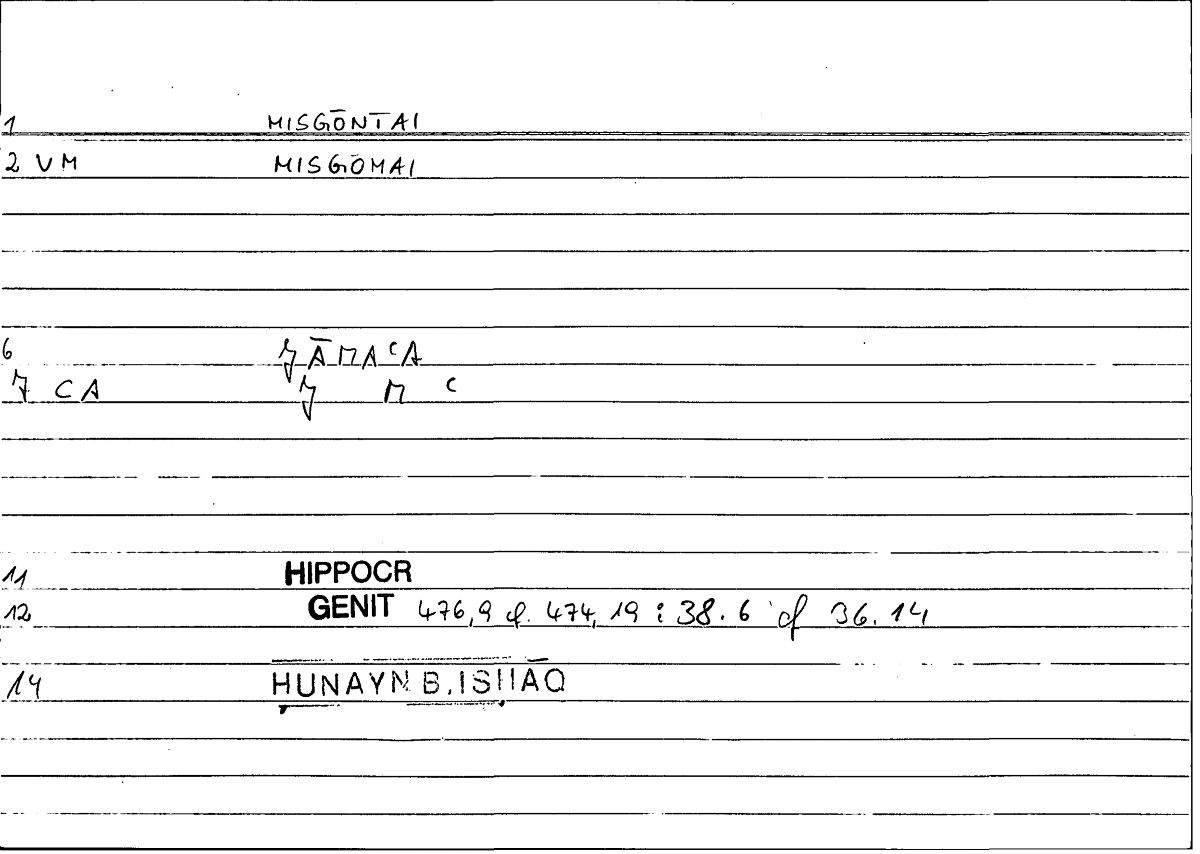 1 MISGŌNTAI
2 VM MISGOMAI
6 ǦĀMAʿA
7 CA Ǧ M ʿ
11 HIPPOCR
12 GENIT 476,9 cf. 474,19 : 38.6 cf 36.14
14 HUNAYN B.ISHĀQ